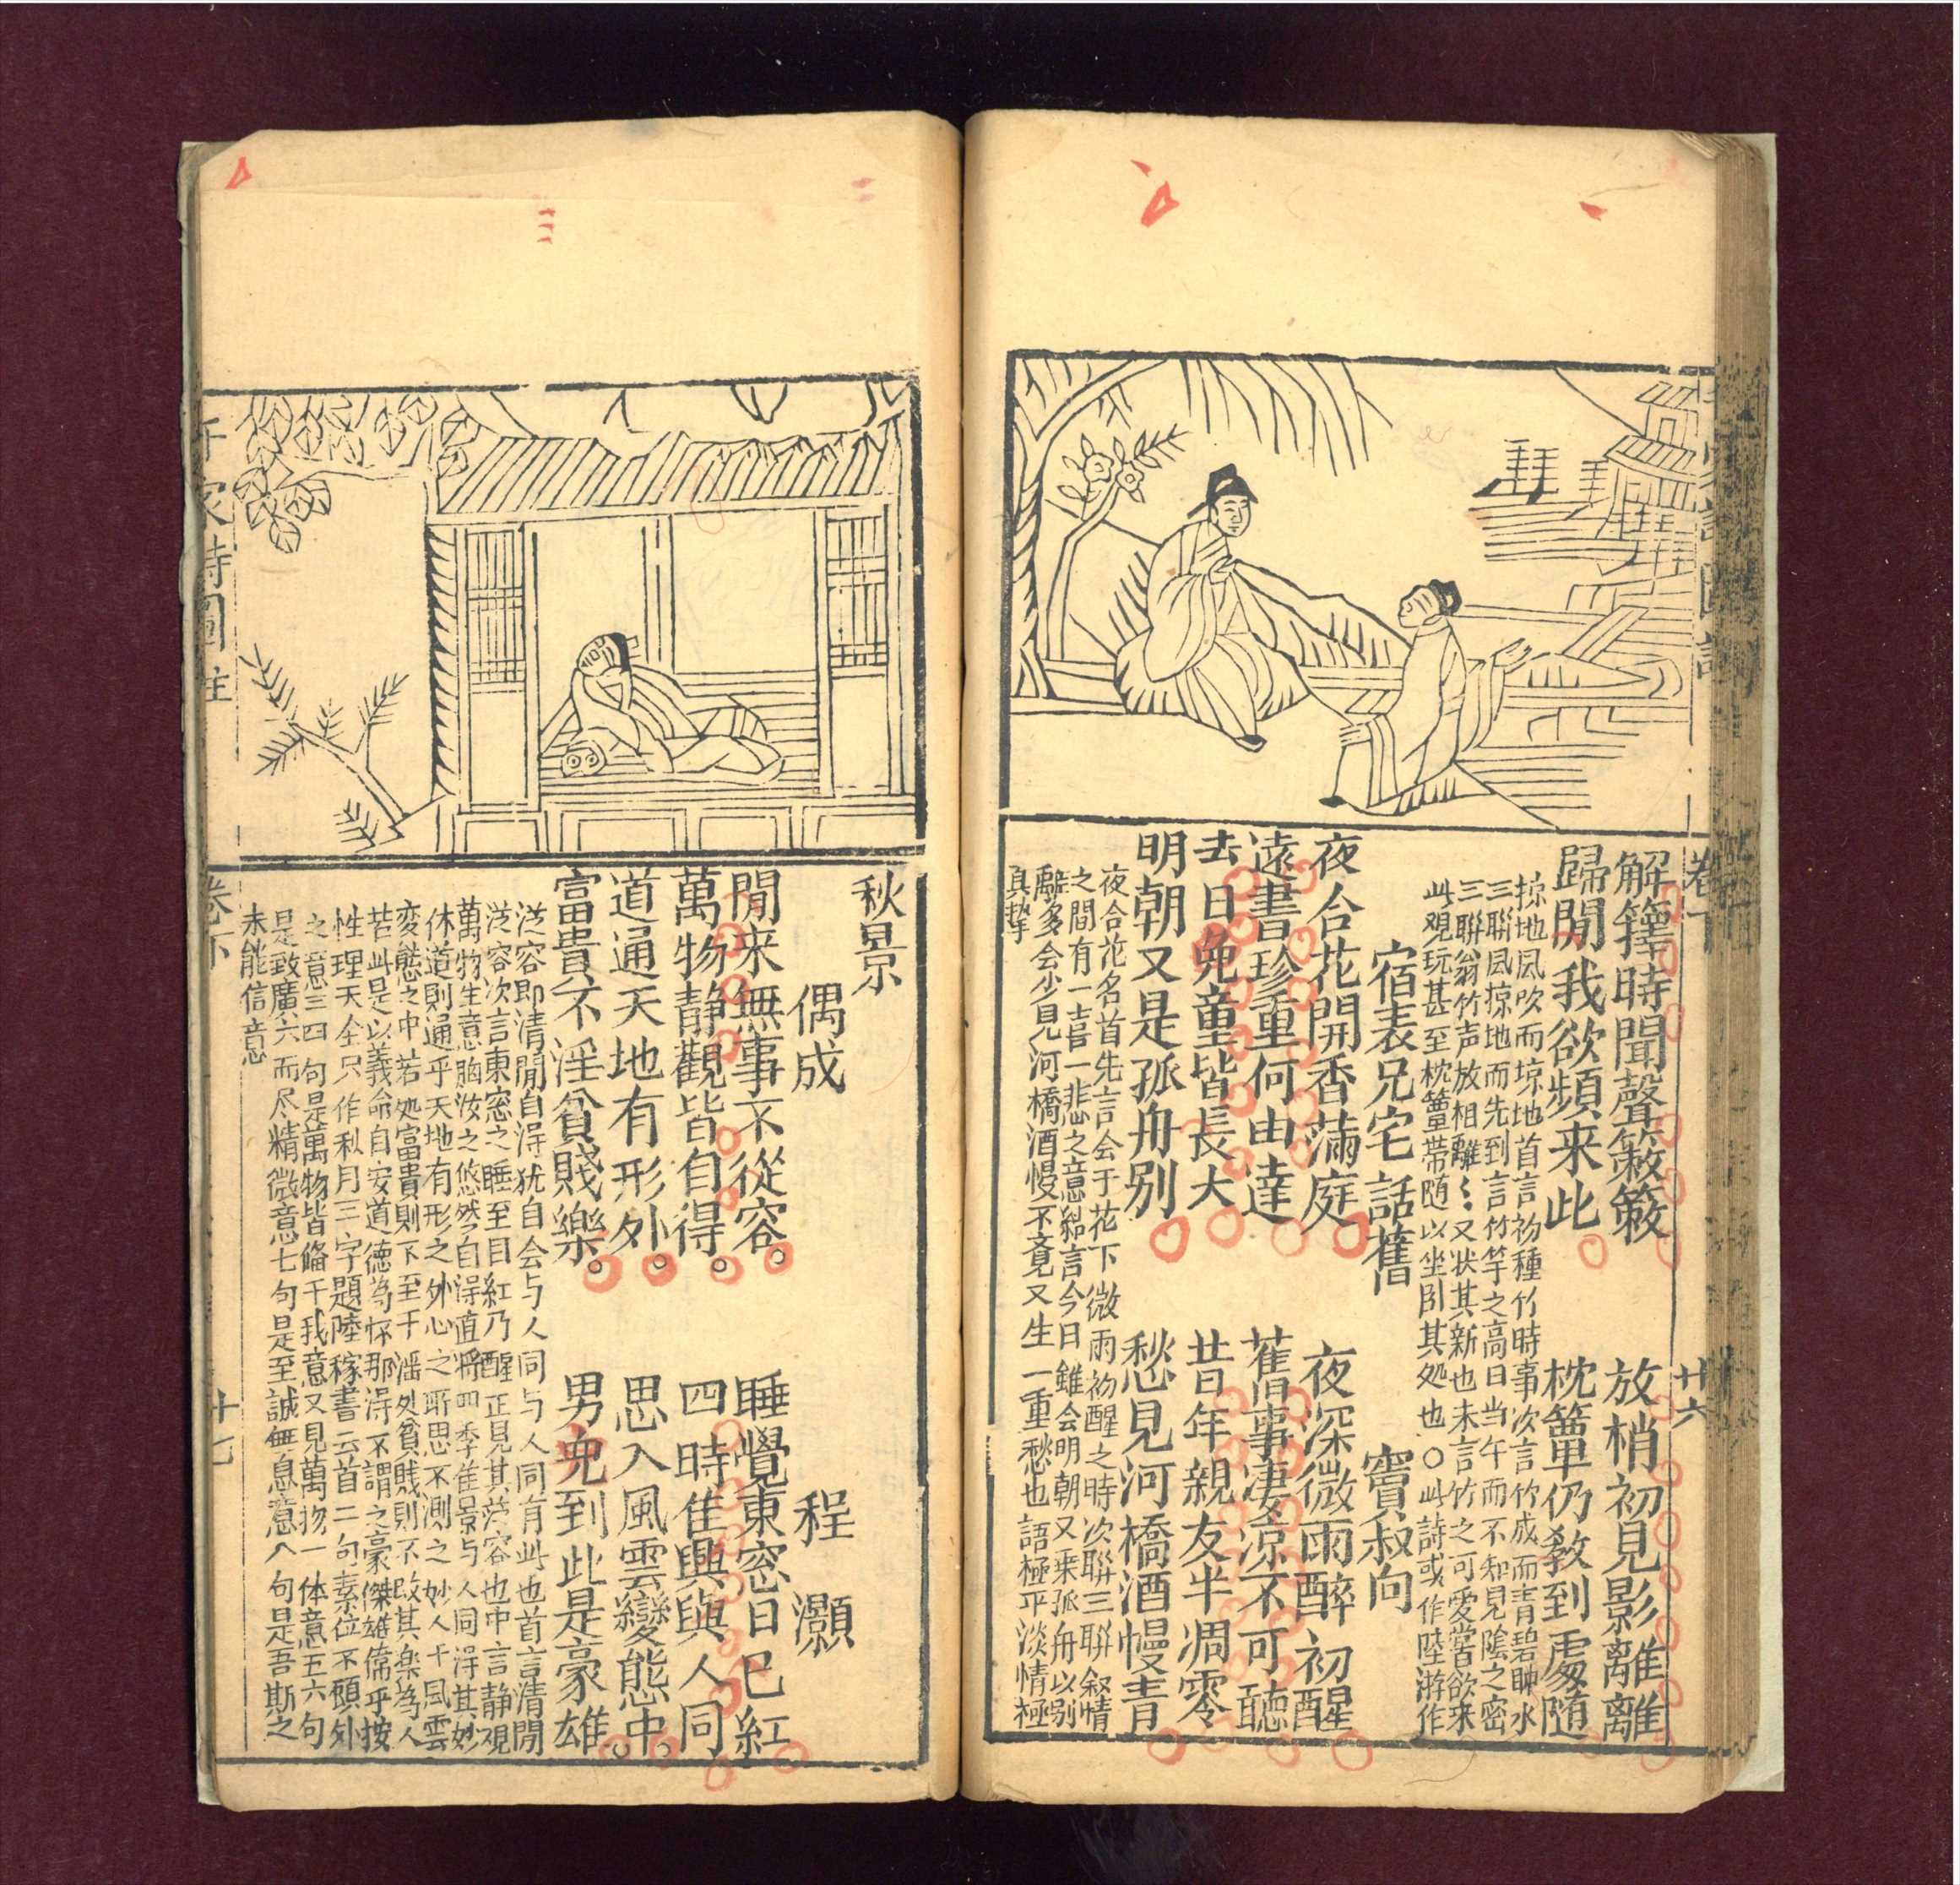 卷下 廿六
解籜時聞聲簌簌 放梢初見影離離
歸閒我欲頻来此 枕簟仍敎到處随
掠地風吹而掠地首言初種竹時事次言竹成而青碧映水
三聨風掠地而先到言竹竿之高日当午而不知見陰之密
三聨翁竹声放相離〻又状其新也末言竹之可愛當欲来
此观玩甚至枕簟带随以坐卧其処也〇此詩或作陸游作
宿表兄宅話舊 竇叔向
夜合花開香滿庭 夜深微雨醉初醒
遠書珍重何由達 舊事凄凉不可聽
去日兒童皆長大 昔年親友半凋零
明朝又是孤舟别 愁見河橋酒幔青
夜合花名首先言会于花下微雨初醒之時次聨三聨叙情
之間有一喜一悲之意結言今日雖会明朝又乘孤舟以别
離多会少見河橋酒幔不竟又生一重愁也語極平淡情極
真摯
秋景
偶成 程灝
閒来無事不從容。 睡覺東窓日已紅
萬物静觀皆自得。 四時隹興與人同
道通天地有形外。 思入風雲變態中。
富貴不淫貧賤樂。 男兒到此是豪雄。
從容即清閒自淂犹自会与人同与人同有此也首言清閒
從容次言東窓之睡至目紅乃醒正見其從容也中言静观
萬物生意胸次之悠然自淂直將四季隹景与人同淂其妙
休道則通乎天地有形之外心之所思不測之妙人于風雲
变態之中若処富貴則不至于滛处貧賎則不改其楽為人
若此是以義命自安道德為怀那淂不謂之豪傑雄偉乎按
性理天全只作秋月二字題陸稼書云首二句素位不願外
之意三四句是萬物皆偹于我意又見萬物一体意五六句
是致廣六而尽精微意七句是至誠無息意八句是吾斯之
未能信意
千家詩圖註 卷下 十七